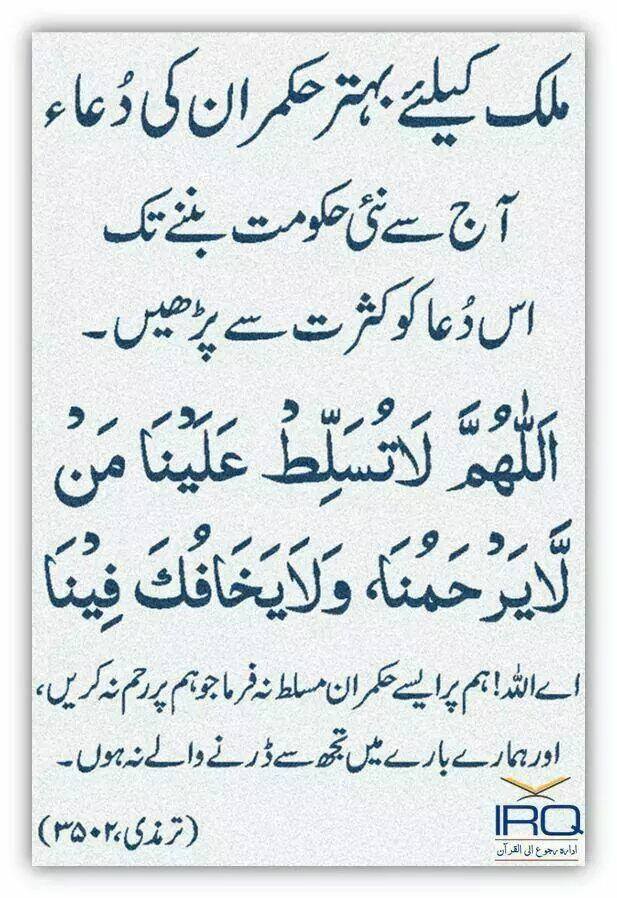 ملک کیلئے بہتر حکمران کی دُعاء
آج سے نئی حکومت بننے تک
اس دُعا کو کثرت سے پڑھیں۔
اَللّٰهُمَّ لَاتُسَلِّطْ عَلَيْنَا مَنْ
لَّايَرْحَمُنَا، وَلَايَخَافُكَ فِيْنَا
اے اللہ! ہم پر ایسے حکمران مسلط نہ فرما جو ہم پر رحم نہ کریں،
اور ہمارے بارے میں تجھ سے ڈرنے والے نہ ہوں۔
(ترمذی، ۳۵۰۲)
IRQ
ادارہ رجوع الی القرآن